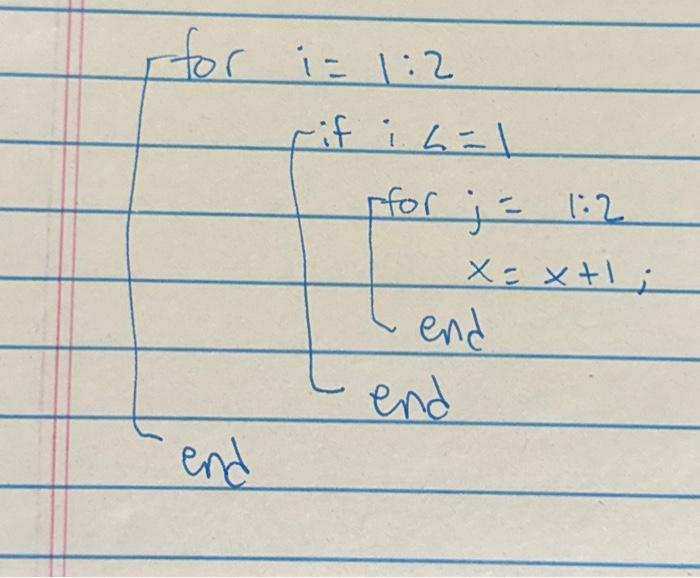 for i = 1:2
if i <= 1
for j = 1:2
x = x+1;
end
end
end